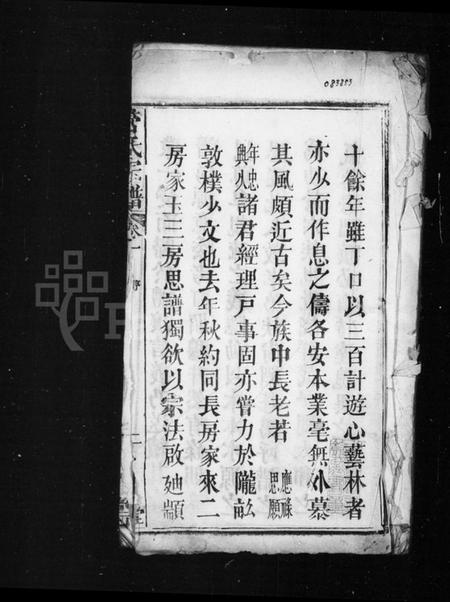 083803
十餘年雖丁口以三百計遊心藝林者
亦少而作息之儔各安本業毫無外慕
其風頗近古矣今族中長老若應祿思願
年興忠從諸君經理戸事固亦嘗力於隴畝
敦樸少文也去年秋約同長房家來二
房家玉三房思譜獨欲以宗法啟廸顓
氏宗譜
卷一
序
二